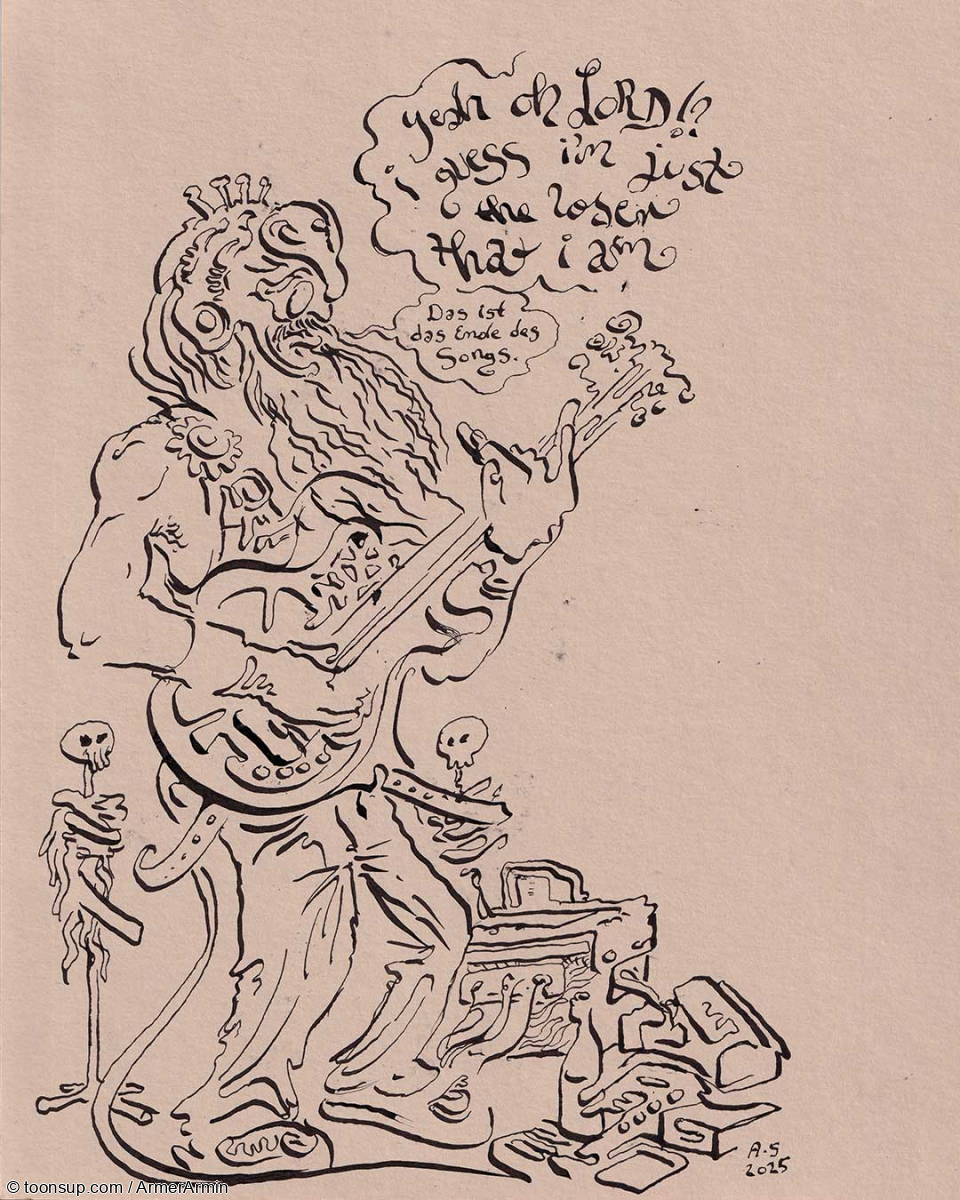 yeah oh LORD!?
i guess i'm just
the loser
that i am
Das ist
das Ende des
Songs.
A.S
2025
© toonsup.com / ArmerArmin